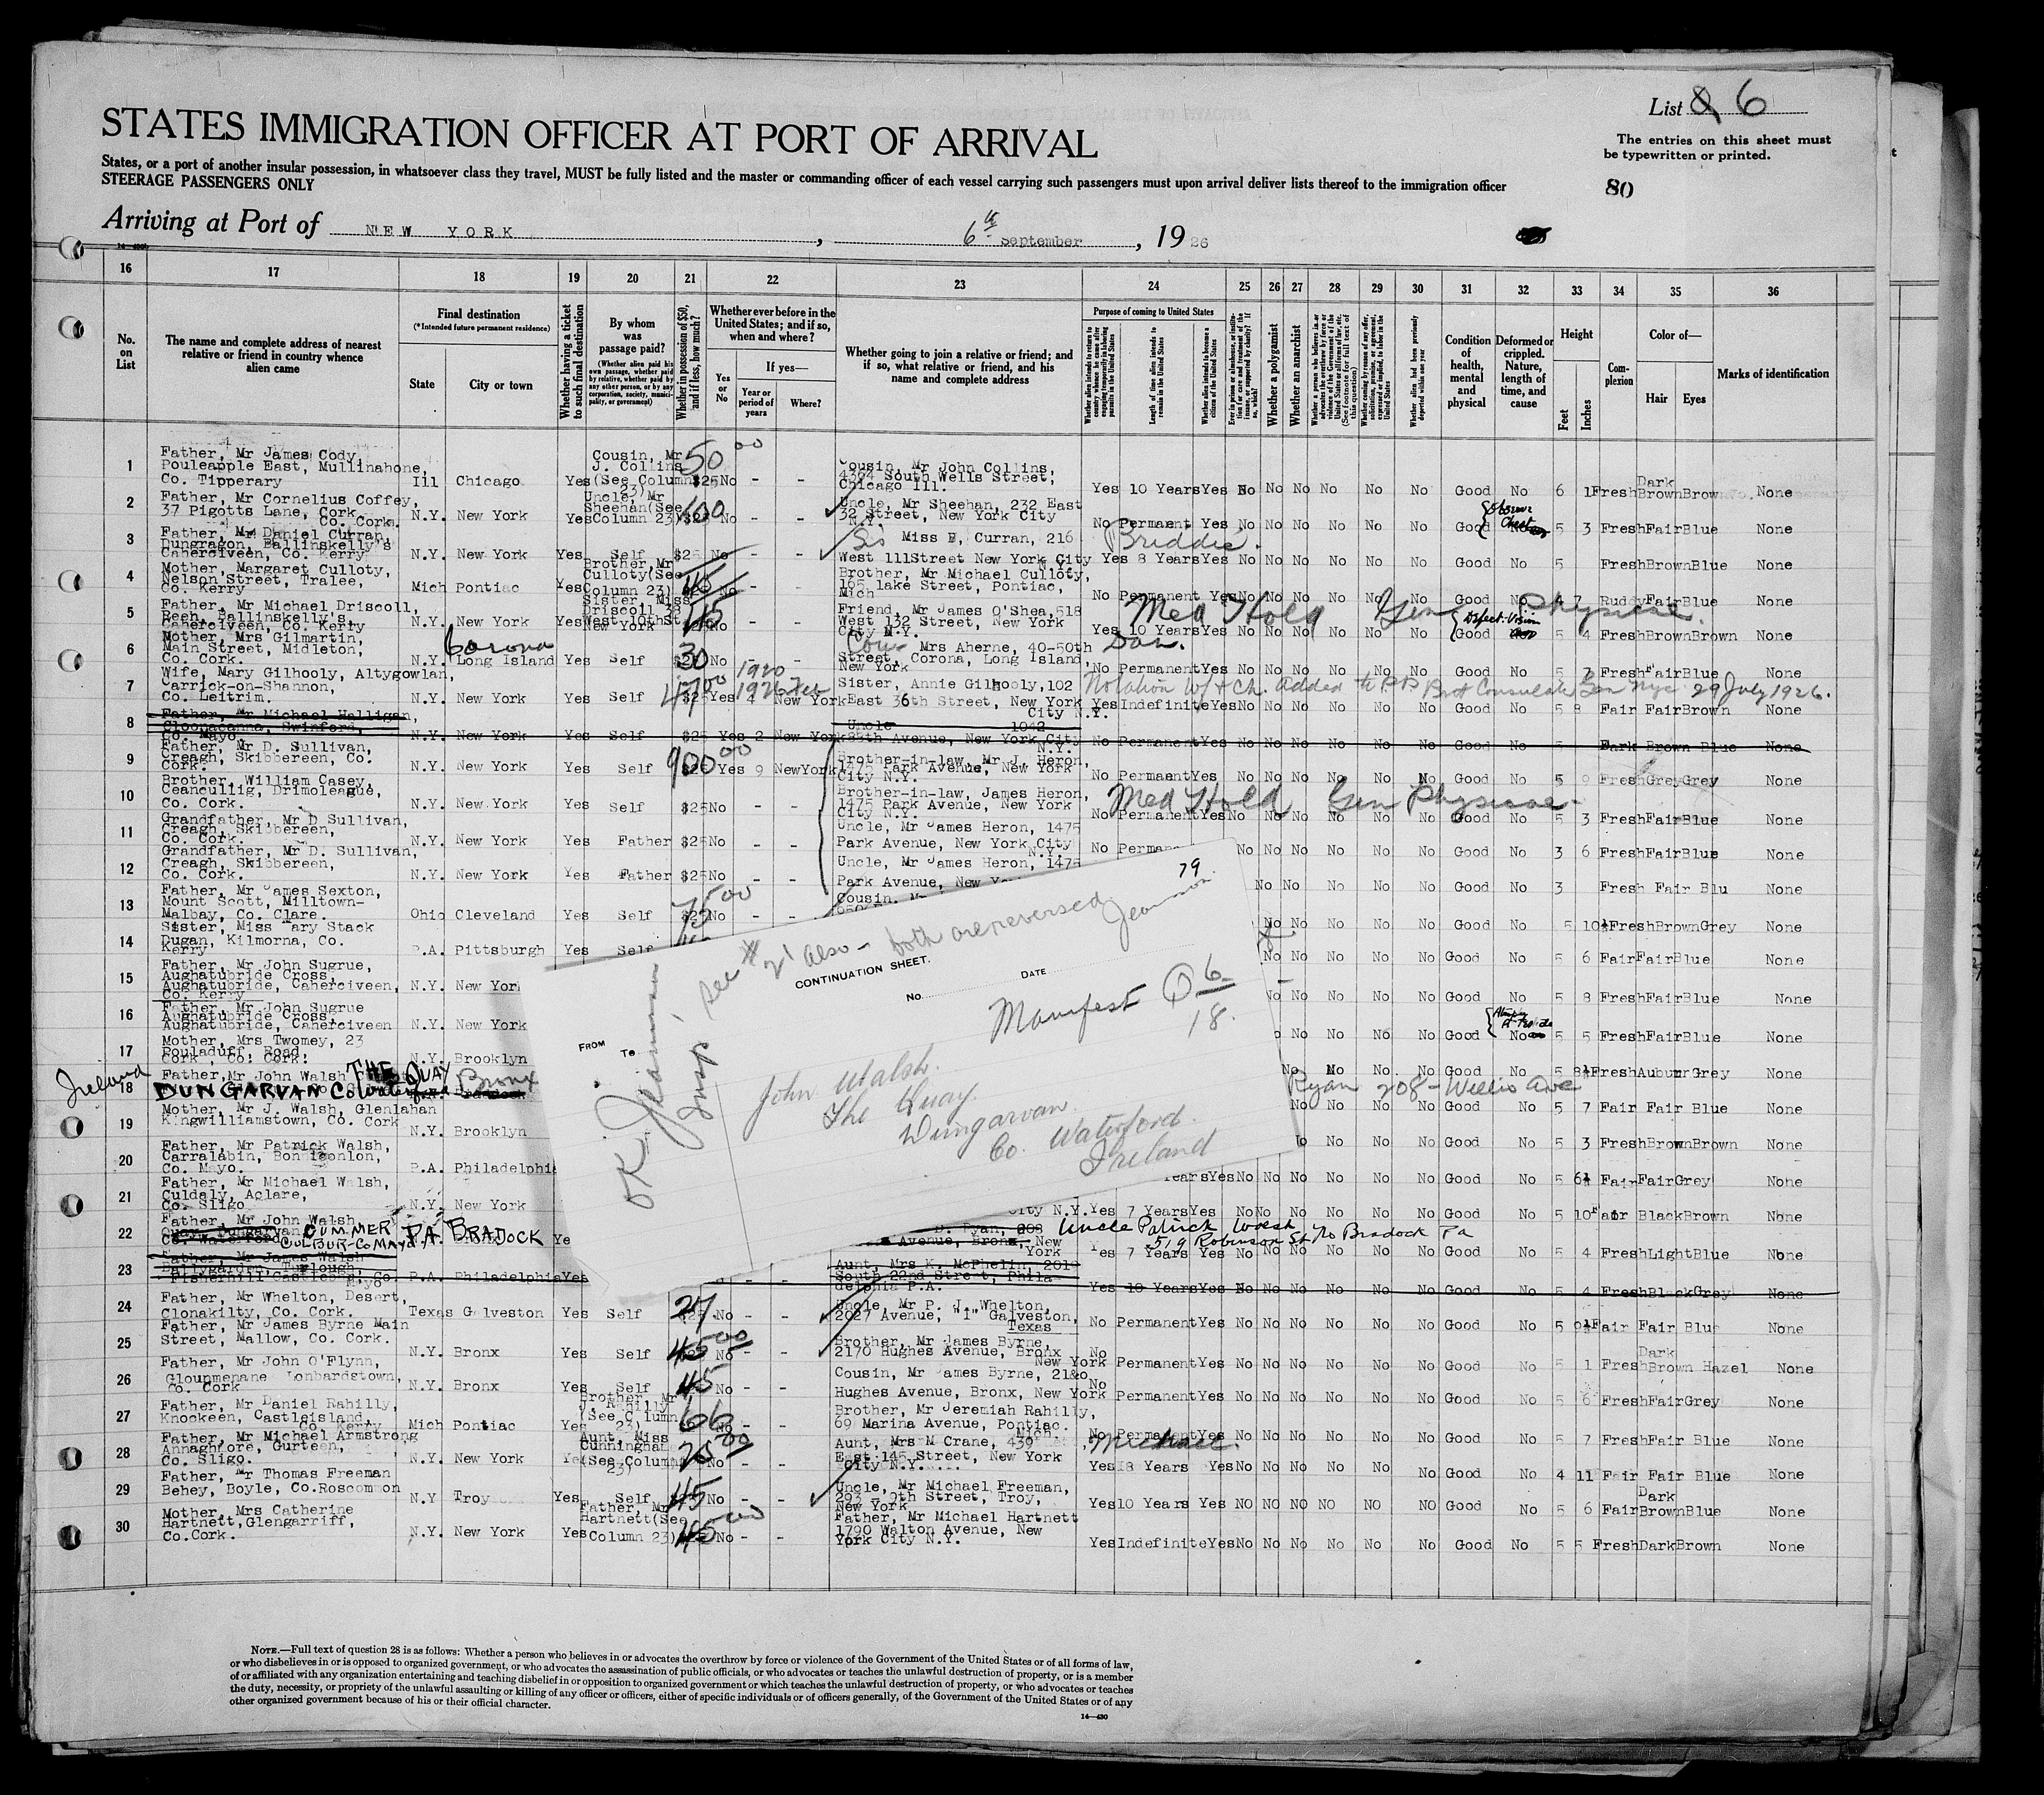 List 8 6
STATES IMMIGRATION OFFICER AT PORT OF ARRIVAL
The entries on this sheet must
be typewritten or printed.
States, or a port of another insular possession, in whatsoever class they travel, MUST be fully listed and the master or commanding officer of each vessel carrying such passengers must upon arrival deliver lists thereof to the immigration officer
STEERAGE PASSENGERS ONLY
80
Arriving at Port of NEW YORK, 6th September, 1926
16 17 18 19 20 21 22 23 24 25 26 27 28 29 30 31 32 33 34 35 36
No. on List
The name and complete address of nearest relative or friend in country whence alien came
Final destination
(*Intended future permanent residence)
State
City or town
Whether having a ticket to such final destination
By whom was passage paid?
(Whether alien paid his own passage, whether paid by relative, whether paid by any other person, or by any corporation, society, municipality, or government)
Whether in possession of $50, and if less, how much?
Whether ever before in the United States; and if so, when and where?
Yes or No
If yes—
Year or period of years
Where?
Whether going to join a relative or friend; and if so, what relative or friend, and his name and complete address
Purpose of coming to United States
Length of time alien intends to remain in the United States
Whether alien intends to become a citizen of the United States
Whether a polygamist
Whether an anarchist
Whether alien had been previously deported within one year
Condition of health, mental and physical
Deformed or crippled. Nature, length of time, and cause
Height
Feet
Inches
Complexion
Color of—
Hair
Eyes
Marks of identification
1 Father, Mr James Cody, Pouleapple East, Mullinahone, Co. Tipperary Ill Chicago Yes Cousin, Mr J. Collins (See Column 23) $25 50 00 No - - Cousin, Mr John Collins, 4364 South Wells Street, Chicago Ill. Yes 10 Years Yes No No No No No No Good No 6 1 Fresh Dark Brown Brown None
2 Father, Mr Cornelius Coffey, 37 Pigotts Lane, Cork Co. Cork. N.Y. New York Yes Uncle Mr Sheehan (See Column 23) 100 No - - Uncle, Mr Sheehan, 232 East 32 Street, New York City N.Y. No Permaent Yes No No No No No No Good Chest 5 3 Fresh Fair Blue None
3 Father, Mr Daniel Curran, Dungragon, Ballinskelly's Caherciveen, Co. Kerry N.Y. New York Yes Self $25 No - - Sis Miss E, Curran, 216 West 111Street New York City N.Y. Briddie. Yes 8 Years Yes No No No No No No Good No 5 Fresh Brown Blue None
4 Mother, Margaret Culloty, Nelson Street, Tralee, Co. Kerry Mich Pontiac Yes Brother, Mr Culloty (See Column 23) No - - Brother, Mr Michael Culloty, 165 lake Street, Pontiac, Mich No Permanent Yes No No No No No No Good No 7 Ruddy Fair Blue None
Med Hold Gen Physicae.
5 Father, Mr Michael Driscoll, Reen, Ballinskelly's, Caherciveen, Co. Kerry N.Y. New York Yes Sister, Miss Driscoll 38 West 10th St New York 45 No Friend, Mr James O'Shea, 518 West 132 Street, New York City N.Y. Yes 10 Years Yes No No No No No No Good Defect. Vision 5 4 Fresh Brown Brown None
6 Mother, Mrs Gilmartin, Main Street, Midleton, Co. Cork. N.Y. Corona Long Island Yes Self 30 No - - Cou- Mrs Aherne, 40-50th Street, Corona, Long Island, New York Dan. No Permanent Yes No No No No No No Good No 5 7 Fresh Fair Blue None
7 Wife, Mary Gilhooly, Altygowlan, Carrick-on-Shannon, Co. Leitrim. N.Y. New York Yes Self $25 Yes 4 1920 1926 Feb New York Sister, Annie Gilhooly, 102 East 36th Street, New York City N.Y. Yes Indefinite Yes No No No No No No Good No 5 8 Fair Fair Brown None
Notation w/t Ch. added to PP Brit Consulate Gen Nyc 29 July 1926.
8 Father, Mr Michael Halligan, Cloonacanna, Swinford, Co. Mayo N.Y. New York Yes Self $25 Yes 2 New York Uncle 1042 85th Avenue, New York City N.Y. No Permanent Yes No No No No No No Good No 5 Dark Brown Blue None
9 Father, Mr D. Sullivan, Creagh, Skibbereen, Co. Cork. N.Y. New York Yes Self $25 900 00 Yes 9 NewYork Brother-in-law, Mr J. Heron, 1475 Park Avenue, New York City N.Y. No Permaent Yes No No No No No No Good No 5 9 Fresh Grey Grey None
10 Brother, William Casey, Ceanculiig, Drimoleague, Co. Cork. N.Y. New York Yes Self $25 No - - Brother-in-law, James Heron, 1475 Park Avenue, New York City N.Y. No Permanent Yes No No No No No No Good No 5 3 Fresh Fair Blue None
Med Hold Gen Physicae-
11 Grandfather, Mr D Sullivan, Creagh, Skibbereen, Co. Cork. N.Y. New York Yes Father $25 No - - Uncle, Mr James Heron, 1475 Park Avenue, New York City N.Y. No No No No No No No Good No 3 6 Fresh Fair Blue None
12 Grandfather, Mr D. Sullivan, Creagh, Skibbereen, Co. Cork. N.Y. New York Yes Father $25 No - - Uncle, Mr James Heron, 1475 Park Avenue, New No No No No No Good No 3 Fresh Fair Blu None
13 Father, Mr James Sexton, Mount Scott, Milltown-Malbay, Co. Clare. Ohio Cleveland Yes Self $25 75 00 No - - Cousin. No No No No No Good No 5 10½ Fresh Brown Grey None
14 Sister, Miss Mary Stack Dugan, Kilmorna, Co. Kerry P.A. Pittsburgh Yes Self No No No No Good No 5 6 Fair Fair Blue None
15 Father, Mr John Sugrue, Aughatubride Cross, Aughatubride, Caherciveen, Co. Kerry N.Y. New York No No No No No Good No 5 8 Fresh Fair Blue None
16 Father, Mr John Sugrue Aughatubride Cross, Aughatubride, Caherciveen N.Y. New York No No No No Good No 5 5 Fresh Fair Blue None
17 Mother, Mrs Twomey, 23 Pouladuff, Road, Cork, Co. Cork. N.Y. Brooklyn No No No No Good No 5 8½ Fresh Auburn Grey None
Ireland
18 Father, Mr John Walsh THE QUAY DUNGARVAN Co Waterford Bronx Braddock Ryan 208 - Willis Ave No No No No Good No 5 7 Fair Fair Blue None
19 Mother, Mr J. Walsh, Glenlahan Kingwilliamstown, Co. Cork N.Y. Brooklyn No No No No Good No 5 3 Fresh Brown Brown None
20 Father, Mr Patrick Walsh, Carralabin, Bonnigonlon, Co. Mayo. P.A. Philadelphia ears Yes No No No No No No Good No 5 6½ Fair Fair Grey None
21 Father, Mr Michael Walsh, Culdaly, Aclare, Co. Sligo N.Y. New York City N.Y. Yes 7 Years Yes No No No No No No Good No 5 10½ Fair Black Brown None
22 Father, Mr John Walsh, Quay, Dungarvan, Co. Waterford CUMMER CULBUR-Co MAYO P.A. BRADOCK Ye Ryan, 208 Avenue, Bronx, New York Uncle Patrick Walsh 519 Robinson St. No Bradock Pa Yes 7 Years Yes No No No No No No Good No 5 4 Fresh Light Blue None
23 Father, Mr James Walsh Ballygarden, Turlough, Fisherhill Castlebar, Co. Mayo P.A. Philadelphia Yes - - Aunt, Mrs K. McPhelin, 2019 South 22nd Street, Philadelphia P.A. Yes 10 Years Yes No No No No No No Good No 5 4 Fresh Black Grey None
24 Father, Mr Whelton, Desert, Clonakilty, Co. Cork. Texas Galveston Yes Self 27 No - - Uncle, Mr P. J. Whelton, 2027 Avenue, "I" Galveston, Texas No Permanent Yes No No No No No No Good No 5 9½ Fair Fair Blue None
25 Father, Mr James Byrne Main Street, Mallow, Co. Cork. N.Y. Bronx Yes Self 45 00 No - Brother, Mr James Byrne, 2170 Hughes Avenue, Bronx New York No Permanent Yes No No No No No No Good No 5 1 Fresh Dark Brown Hazel None
26 Father, Mr John O'Flynn, Glounmenane Lombardstown, Co. Cork N.Y. Bronx Yes Self 45 No - - Cousin, Mr James Byrne, Hughes Avenue, Bronx, New York No Permanent Yes No No No No No No Good No 5 6 Fresh Fair Grey None
27 Father, Mr Daniel Rahilly, Knockeen, Castleisland, Co. Kerry Mich Pontiac Yes Brother, Mr J. Rahilly (See Column 23) 66 No - Brother, Mr Jeremiah Rahilly, 69 Marina Avenue, Pontiac. Mich. No Permanent Yes No No No No No No Good No 5 7 Fresh Fair Blue None
28 Father, Mr Michael Armstrong Annaghmore, Gurteen, Co. Sligo. N.Y. New York Yes Aunt, Miss Cunningham (See Column 23) 75 00 No - - Aunt, Mrs M Crane, 439 East 145 Street, New York City N.Y. Michael. Yes 18 Years Yes No No No No No No Good No 4 11 Fair Fair Blue None
29 Father, Mr Thomas Freeman Behey, Boyle, Co.Roscommon N.Y Troy Yes Self 45 No - - Uncle, Mr Michael Freeman, 293 9th Street, Troy, New York Yes 10 Years Yes NO NO NO NO NO NO Good No 5 6 Fair Dark Brown Blue None
30 Mother, Mrs Catherine Hartnett, Glengarriff, Co.Cork. N.Y. New York Yes Father, Mr Hartnett (See Column 23) 45 00 No - - Father, Mr Michael Hartnett 1790 Walton Avenue, New York City N.Y. Yes Indefinite Yes No No No No No No Good No 5 5 Fresh Dark Brown None
79
see # 21 also - both are reversed Jeannson.
CONTINUATION SHEET.
No.
DATE
FROM
To
Manifest 6
18.
John Walsh.
The Quay.
Dungarvan.
Co. Waterford.
Ireland
OK. Jeannson Insp.
NOTE.—Full text of question 28 is as follows: Whether a person who believes in or advocates the overthrow by force or violence of the Government of the United States or of all forms of law,
or who disbelieves in or is opposed to organized government, or who advocates the assassination of public officials, or who advocates or teaches the unlawful destruction of property, or is a member
of or affiliated with any organization entertaining and teaching disbelief in or opposition to organized government or which teaches the unlawful destruction of property, or who advocates or teaches
the duty, necessity, or propriety of the unlawful assaulting or killing of any officer or officers, either of specific individuals or of officers generally, of the Government of the United States or of any
other organized government because of his or their official character.
14—430